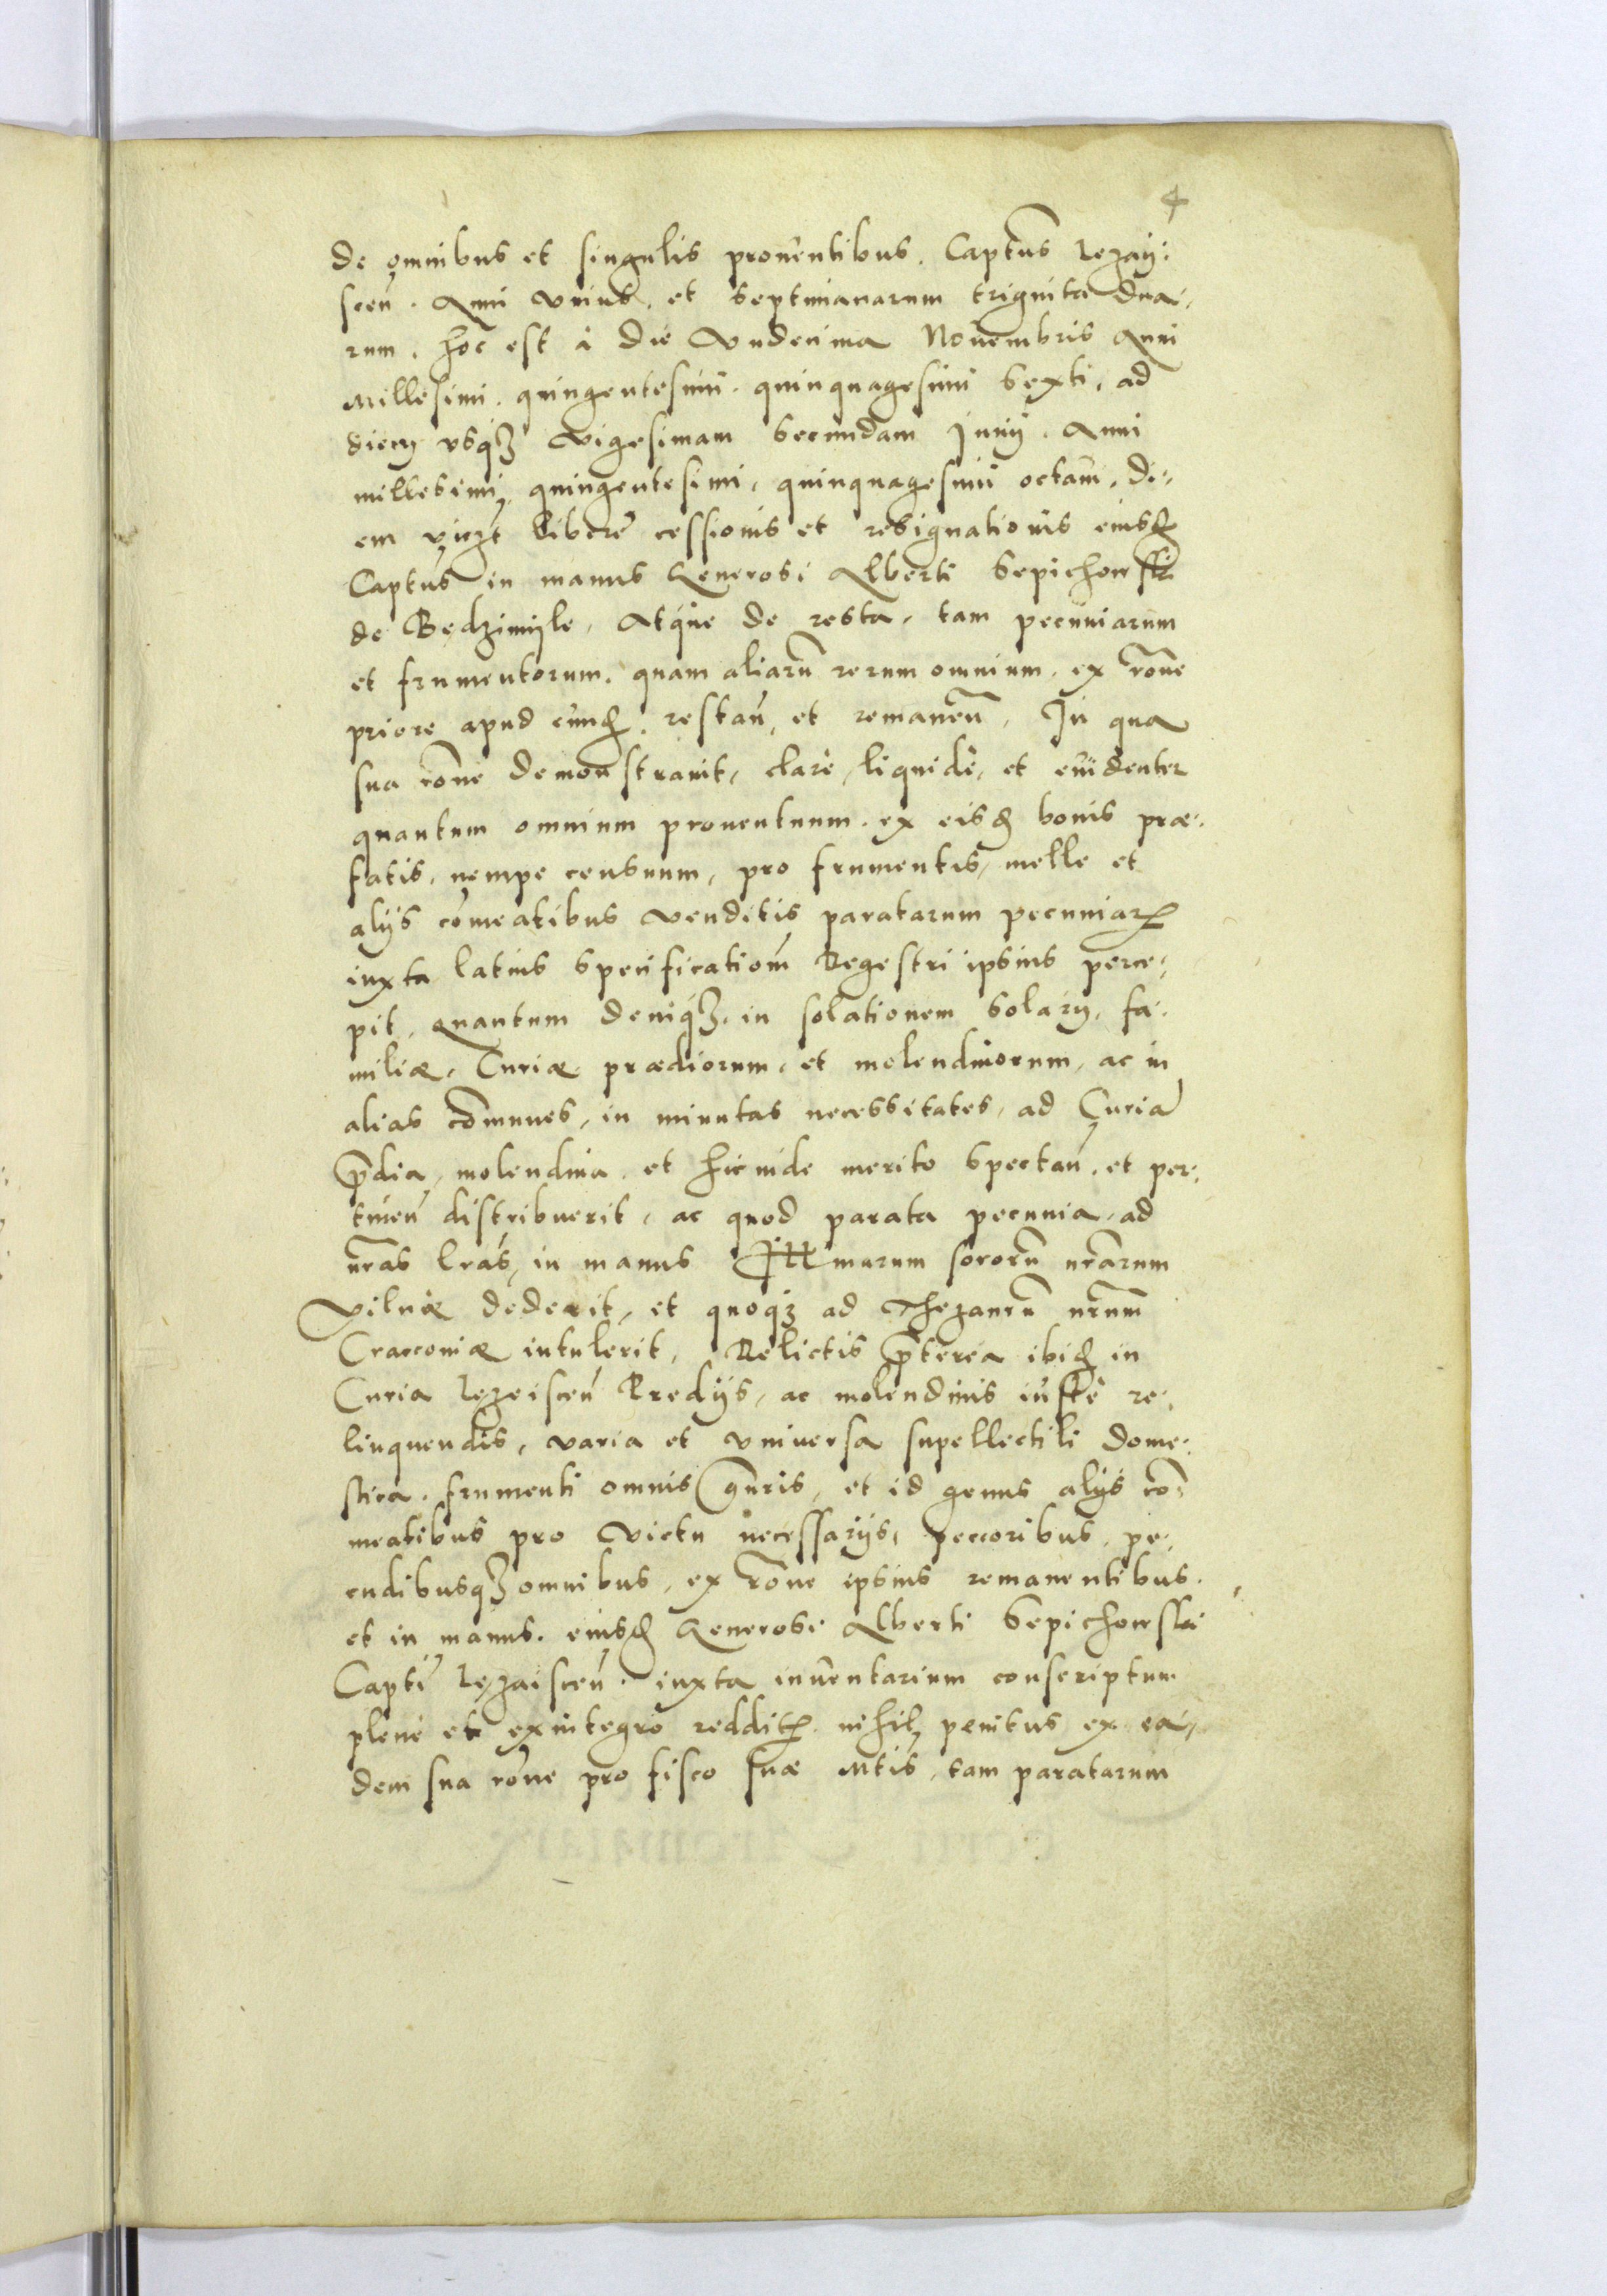 4
de omnibus et singulis prouentibus. Captus Lezay:
sceñ. Anni vnius. et septimanarum triginta dua:
rum. hoc est à die Vndecima Nouembris Anni
Millesimi. quingentesimi. quinquagesimi sexti, ad
diem vsqꝫ Vigesimam secundam Junij. Anni
millesimi, quingentesimi, quinquagesimi octaui, di:
em viczt liberę cessionis et resignationis eiusđ
Captus in manus Generosi Alberti Sepichowski
de Będzimyśle, Atque de resta, tam pecuniarum
et frumentorum. quam aliarū rerum omnium, ex rōne
priore apud eundđ, restañ, et remaneñ, In qua
sua rōne demonstrauit, clarè, liquidè, et euidenter
quantum omnium prouentuum. ex eisđ bonis præ:
fatis, nempe censuum, pro frumentis, melle et
alijs cōmeatibus venditis paratarum pecuniarꝝ
iuxta latius specificatiom̄ Regestri ipsius perce:
pit, quantum deniqꝫ. in solationem solarij, fa:
miliæ, Curiæ prædiorum, et molendinorum, ac in
alias cōmunes, in minutas necessitates, ad Curia
p̄dia, molendina. et hic inde merito spectañ. et per:
tineñ distribuerit, ac quod parata pecunia, ad
nr̄as lr̄as, in manus Illmarum sororū nr̄arum
Vilnæ dederit, et quoqꝫ ad Thezaurū nr̄um
Cracouiæ intulerit, Relictis p̄terea ibiđ in
Curia Lezeisceñ Predijs, ac molendinis iustè re:
linquendis, varia et vniuersa supellectili dome:
stica. frumenti omnis gn̄ris, et id genus alijs cō:
meatibus pro victu necessarijs, peccoribus, pe:
cudibusqꝫ omnibus, ex rōne ipsius remanentibus.
et in manus. eiusđ Generosi Alberti Sepichowski
Captī Lezaisceñ. iuxta inuentarium conscriptum
plenè et exintegro redditꝭ. nihil penitus ex ea:
dem sua rōne pro fisco suæ Mtis, tam paratarum